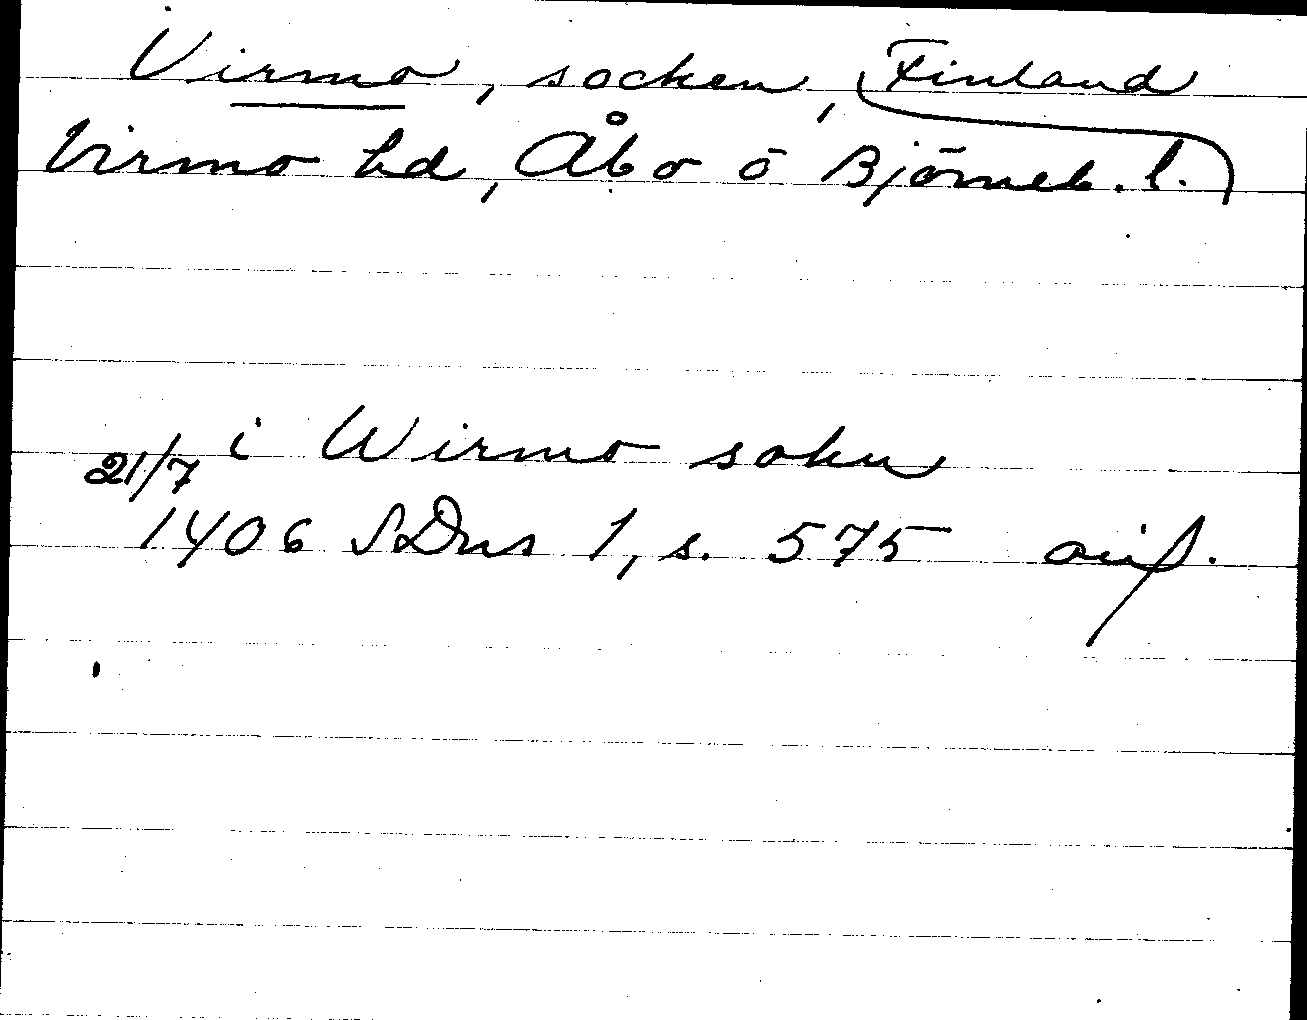 Virmo, socken, Finland
Virmo hd, Åbo o Björneb. l.
i Wirmo sokn
21/7
1406 SDns 1, s. 575 avs.